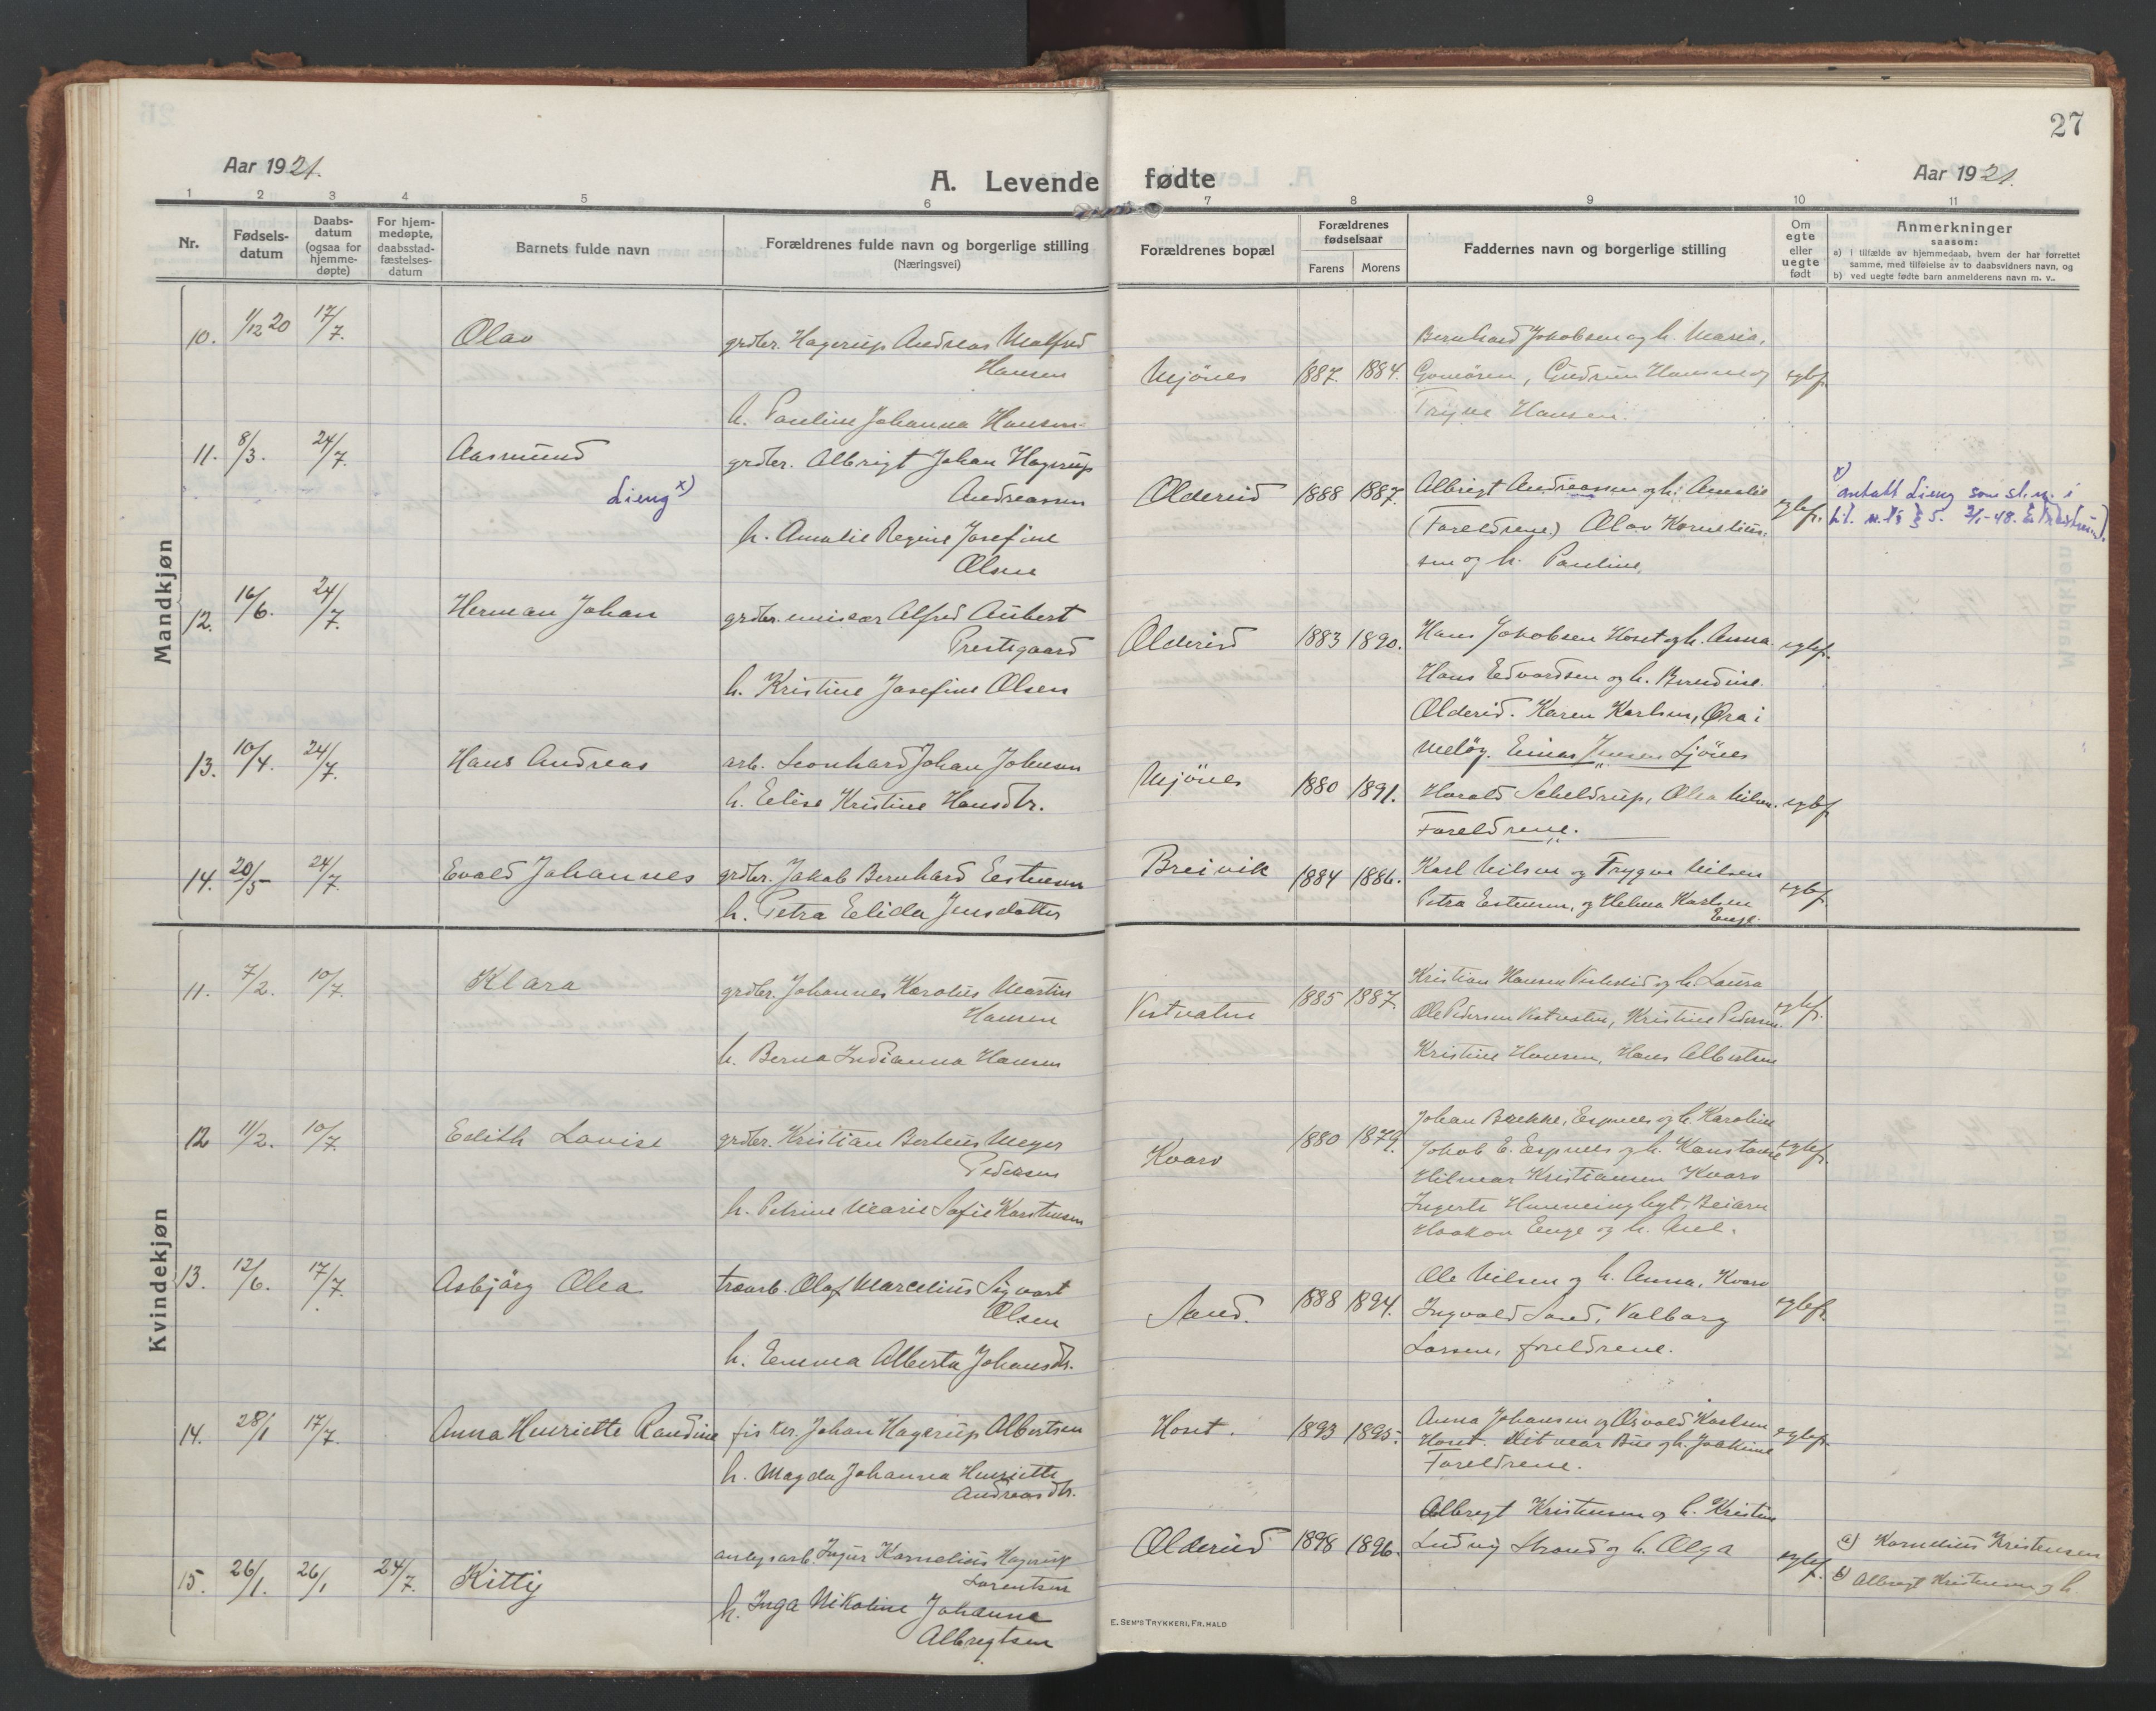 27
Aar 1921.
A. Levende fødte
Aar 1921.
1 2 3 4 5 6 7 8 9 10 11
Nr.
Fødsels-
datum
Daabs-
datum
(ogsaa for
hjemme-
døpte)
For hjem-
medøpte,
daabsstad-
fæstelses-
datum
Barnets fulde navn
Forældrenes fulde navn og borgerlige stilling
(Næringsvei)
Forældrenes bopæl
Forældrenes
fødselsaar
Farens Morens
Faddernes navn og borgerlige stilling
Om
egte
eller
uegte
født
Anmerkninger
saasom:
a) i tilfælde av hjemmedaab, hvem der har forrettet
samme, med tilføielse av to daabsvidners navn, og
b) ved uegte fødte barn anmelderens navn m. v..
Mandkjøn
10. 1/12 20 17/7. Olav
grdbr. Hagerup Andreas Malfred
Hansen
h. Pauline Johanna Hansen
Mjönes 1887. 1884.
Bernhard Jakobsen og h. Maria,
Gudrun Hansen og
Trygve Hansen.
egtef.
11. 8/3. 24/7. Aasmund
Lieng x)
grdbr. Albrigt Johan Hagerup
Andreassen
h. Amalie Regine Josefine
Olsen
Oldereid 1888 1887.
Albrigt Andreassen og h. Amalie
(Foreldrene.) Olav Kornelius-
sen og h. Pauline.
egtef.
x)
antatt Lieng som sl.n. i
h.t. n.l. § 5. 3/1-48.
12. 16/6. 24/7. Herman Johan
grdbr. Alfred Aubert
Prestegaard
h. Kristine Josefine Olsen
Oldereid 1883 1890.
Hans Jakobsen Hoset og h. Anna.
Hans Edvardsen og h. Berndine.
Oldereid. Karen Karlsen, Öra i
Melöy. Einar Jensen Ljönes
egtef.
13. 10/4. 24/7. Hans Andreas
arb. Leonhard Johan Johnsen
h. Elise Kristine Hansdtr.
Mjönes 1880 1891.
Harald Scheldrup, Olea Nilsen.
Foreldrene.
egtef.
14. 20/5 24/7. Evald Johannes
grdbr. Jakob Bernhard Estensen
h. Petra Elida Jensdatter
Breivik 1884 1886.
Karl Nilsen og Trygve Nilsen
Petra Estensen, og Helma Karlsen
Enge.
egtef.
Kvindekjøn
11. 7/2. 10/7. Klara
grdbr. Johannes Karolus Martin
Hansen
h. Berna Indianna Hansen
Vestvatne 1885 1887.
Kristian Hansen og h. Laura
Ole Pedersen Vestvatne, Kristine Pedersen.
Kristine Hansen, Hans Albertsen
egtef.
12 11/2. 10/7. Edith Lovise
grdbr. Kristian Berteus Meyer
Pedersen
h. Petrine Marie Sofie Karstensen
Kvarv 1880 1879.
Johan Brekke, Espnes og h. Karoline
Jakob E. Espnes og h. Konstanse
Hilmar Kristiansen Kvarv
Beiarn
Haakon Enge og h.
egtef.
13. 12/6. 17/7. Asbjörg Olea
Olaf Marcelius Sigvart
Olsen
h. Emma Alberta Johansdtr.
Sand. 1888 1894.
Ole Nilsen og h. Anna, Kvarv
Ingvald Sand, Valborg
Larsen, foreldrene.
egtef.
14. 28/1 17/7. Anna Henriette Randine
fisker. Johan Hagerup Albertsen
h. Magda Johanna Henriette
Andreasdtr.
Hoset. 1893 1895.
Anna Johansen og Osvald Karlsen
Hoset. Ditmar Bue og h. Joakime
Foreldrene.
egtef.
15. 26/1. 26/1 24/7. Kitty
anlegsarb. Kornelius Hagerup
Lorentsen
h. Inga Nikoline Johanne
Albregtsen
Oldereid 1898 1896.
Albregt Kristensen og h. Kristine
Ludvig Strand og h. Olga
egtef.
a) Kornelius Kristensen
b) Albregt Kristensen og h.
E. SEM'S TRYKKERI, FR.HALD